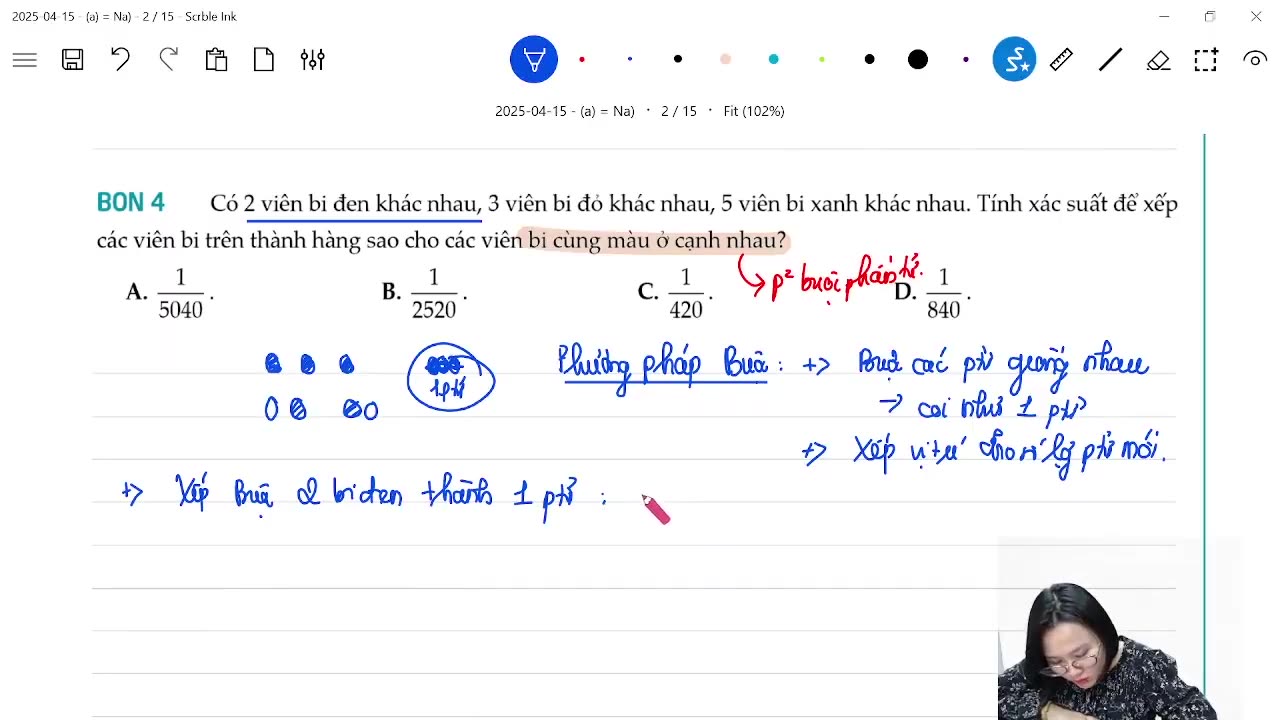 2025-04-15 - (a) = Na) - 2 / 15 - Scrble Ink
2025-04-15 - (a) = Na) · 2 / 15 · Fit (102%)
BON 4 Có 2 viên bi đen khác nhau, 3 viên bi đỏ khác nhau, 5 viên bi xanh khác nhau. Tính xác suất để xếp
các viên bi trên thành hàng sao cho các viên bi cùng màu ở cạnh nhau?
A. 1/5040. B. 1/2520. C. 1/420. D. 1/840.
→ p² buộc phần tử.
1 ptử
Phương pháp Buộc: +> Buộc các ptử giống nhau
→ coi như 1 ptử
+> Xếp vị trí cho ptử mới.
+> Xếp Buộc 2 bi đen thành 1 ptử :